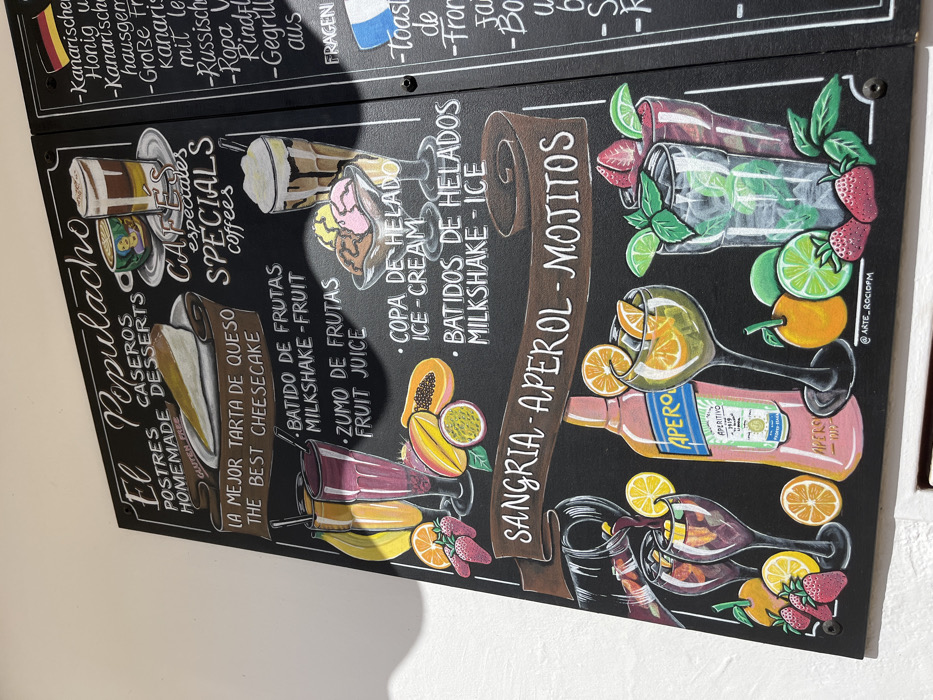 -Kanarischer
Honig u
-Kanarische
hausgem
-Große
Kanaris
mit
-Russische
-Ropa V
Rindf
-Gegrill
aus
FRAGEN
-toast
de
-Fran
El Populacho
POSTRES CASEROS
HOMEMADE DESSERTS
CAFÉS
especiales
SPECIALS
coffees
LA MEJOR TARTA DE QUESO
THE BEST CHEESECAKE
·BATIDO DE FRUTAS
MILKSHAKE-FRUIT
·ZUMO DE FRUTAS
FRUIT JUICE
·COPA DE HELADO
ICE-CREAM
·BATIDOS DE HELADOS
MILKSHAKE-ICE
SANGRIA-APEROL-MOJITOS
APEROL
APERITIVO
@ARTE_ROCIOPM